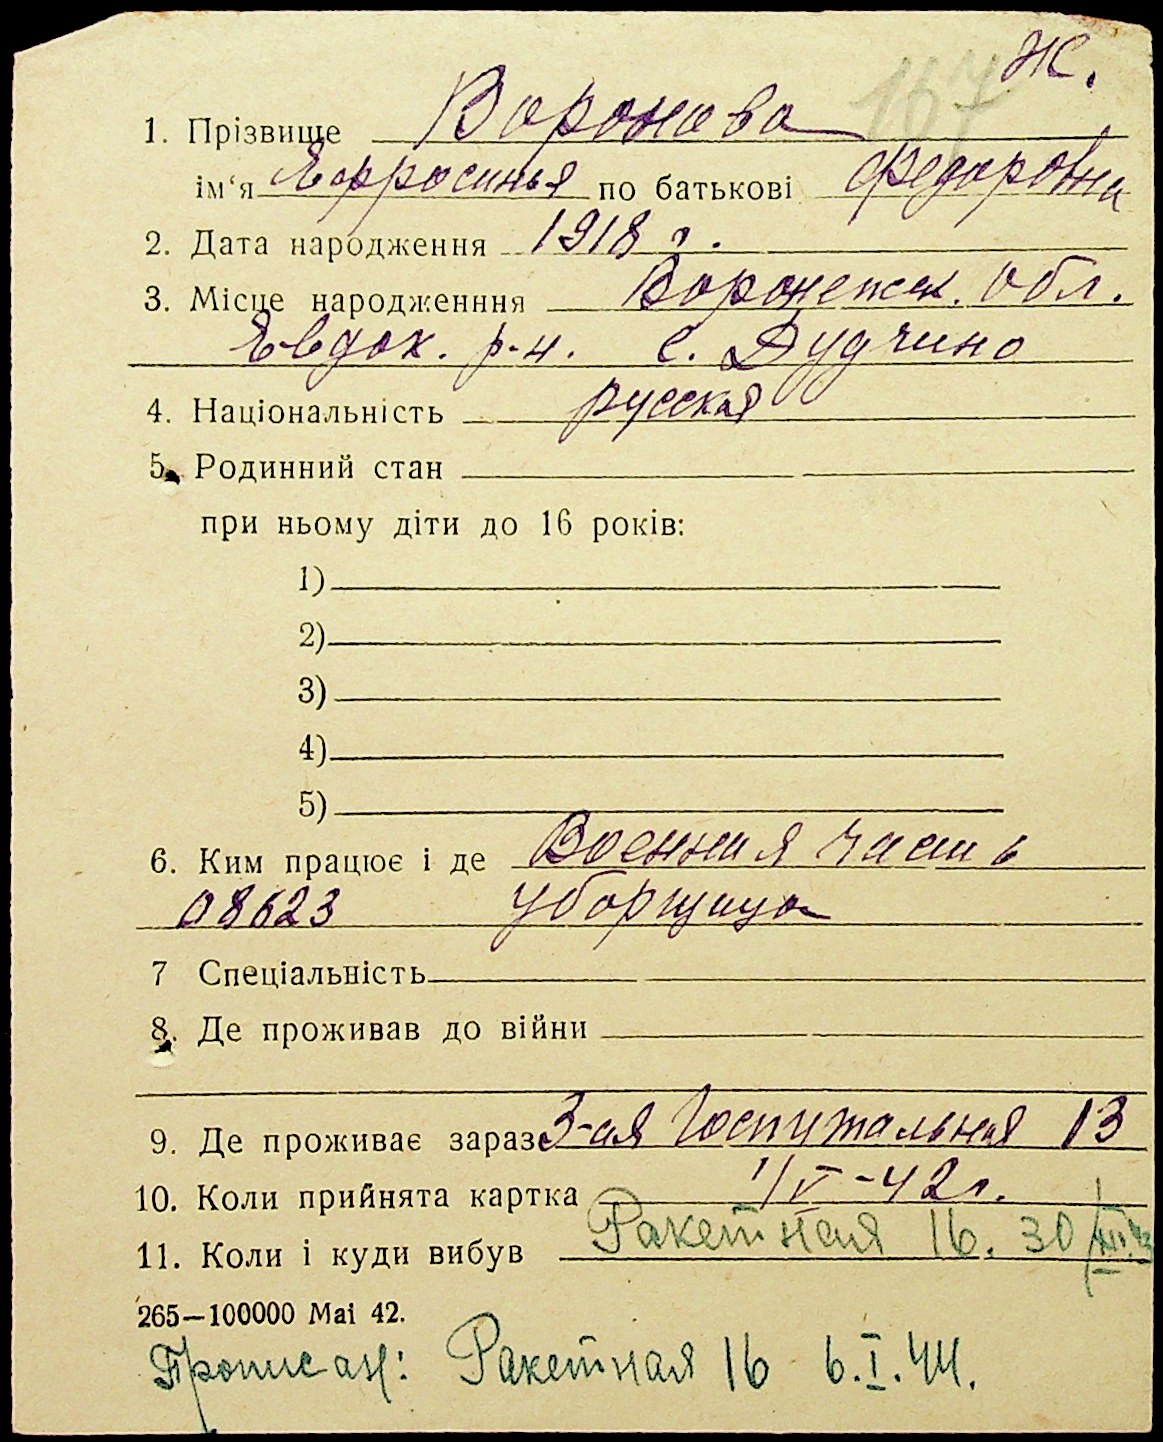 Ж.
167
1. Прізвище Воронова
ім‘я Ефросинья по батькові Федоровна
2. Дата народження 1918 г.
3. Місце народженння Воронежск. обл.
Евдак. р-н. с. Дудчино
4. Національність русская
5. Родинний стан
при ньому діти до 16 років:
1)
2)
3)
4)
5)
6. Ким працює і де Военная часть
08623 уборщица
7 Спеціальність
8. Де проживав до війни
9. Де проживає зараз 3-ая Госпитальная 13
10. Коли прийнята картка 1/V-42г.
11. Коли і куди вибув Ракетная 16. 30/XII.43
265—100000 Маі 42.
Прописан: Ракетная 16 6.I.44.